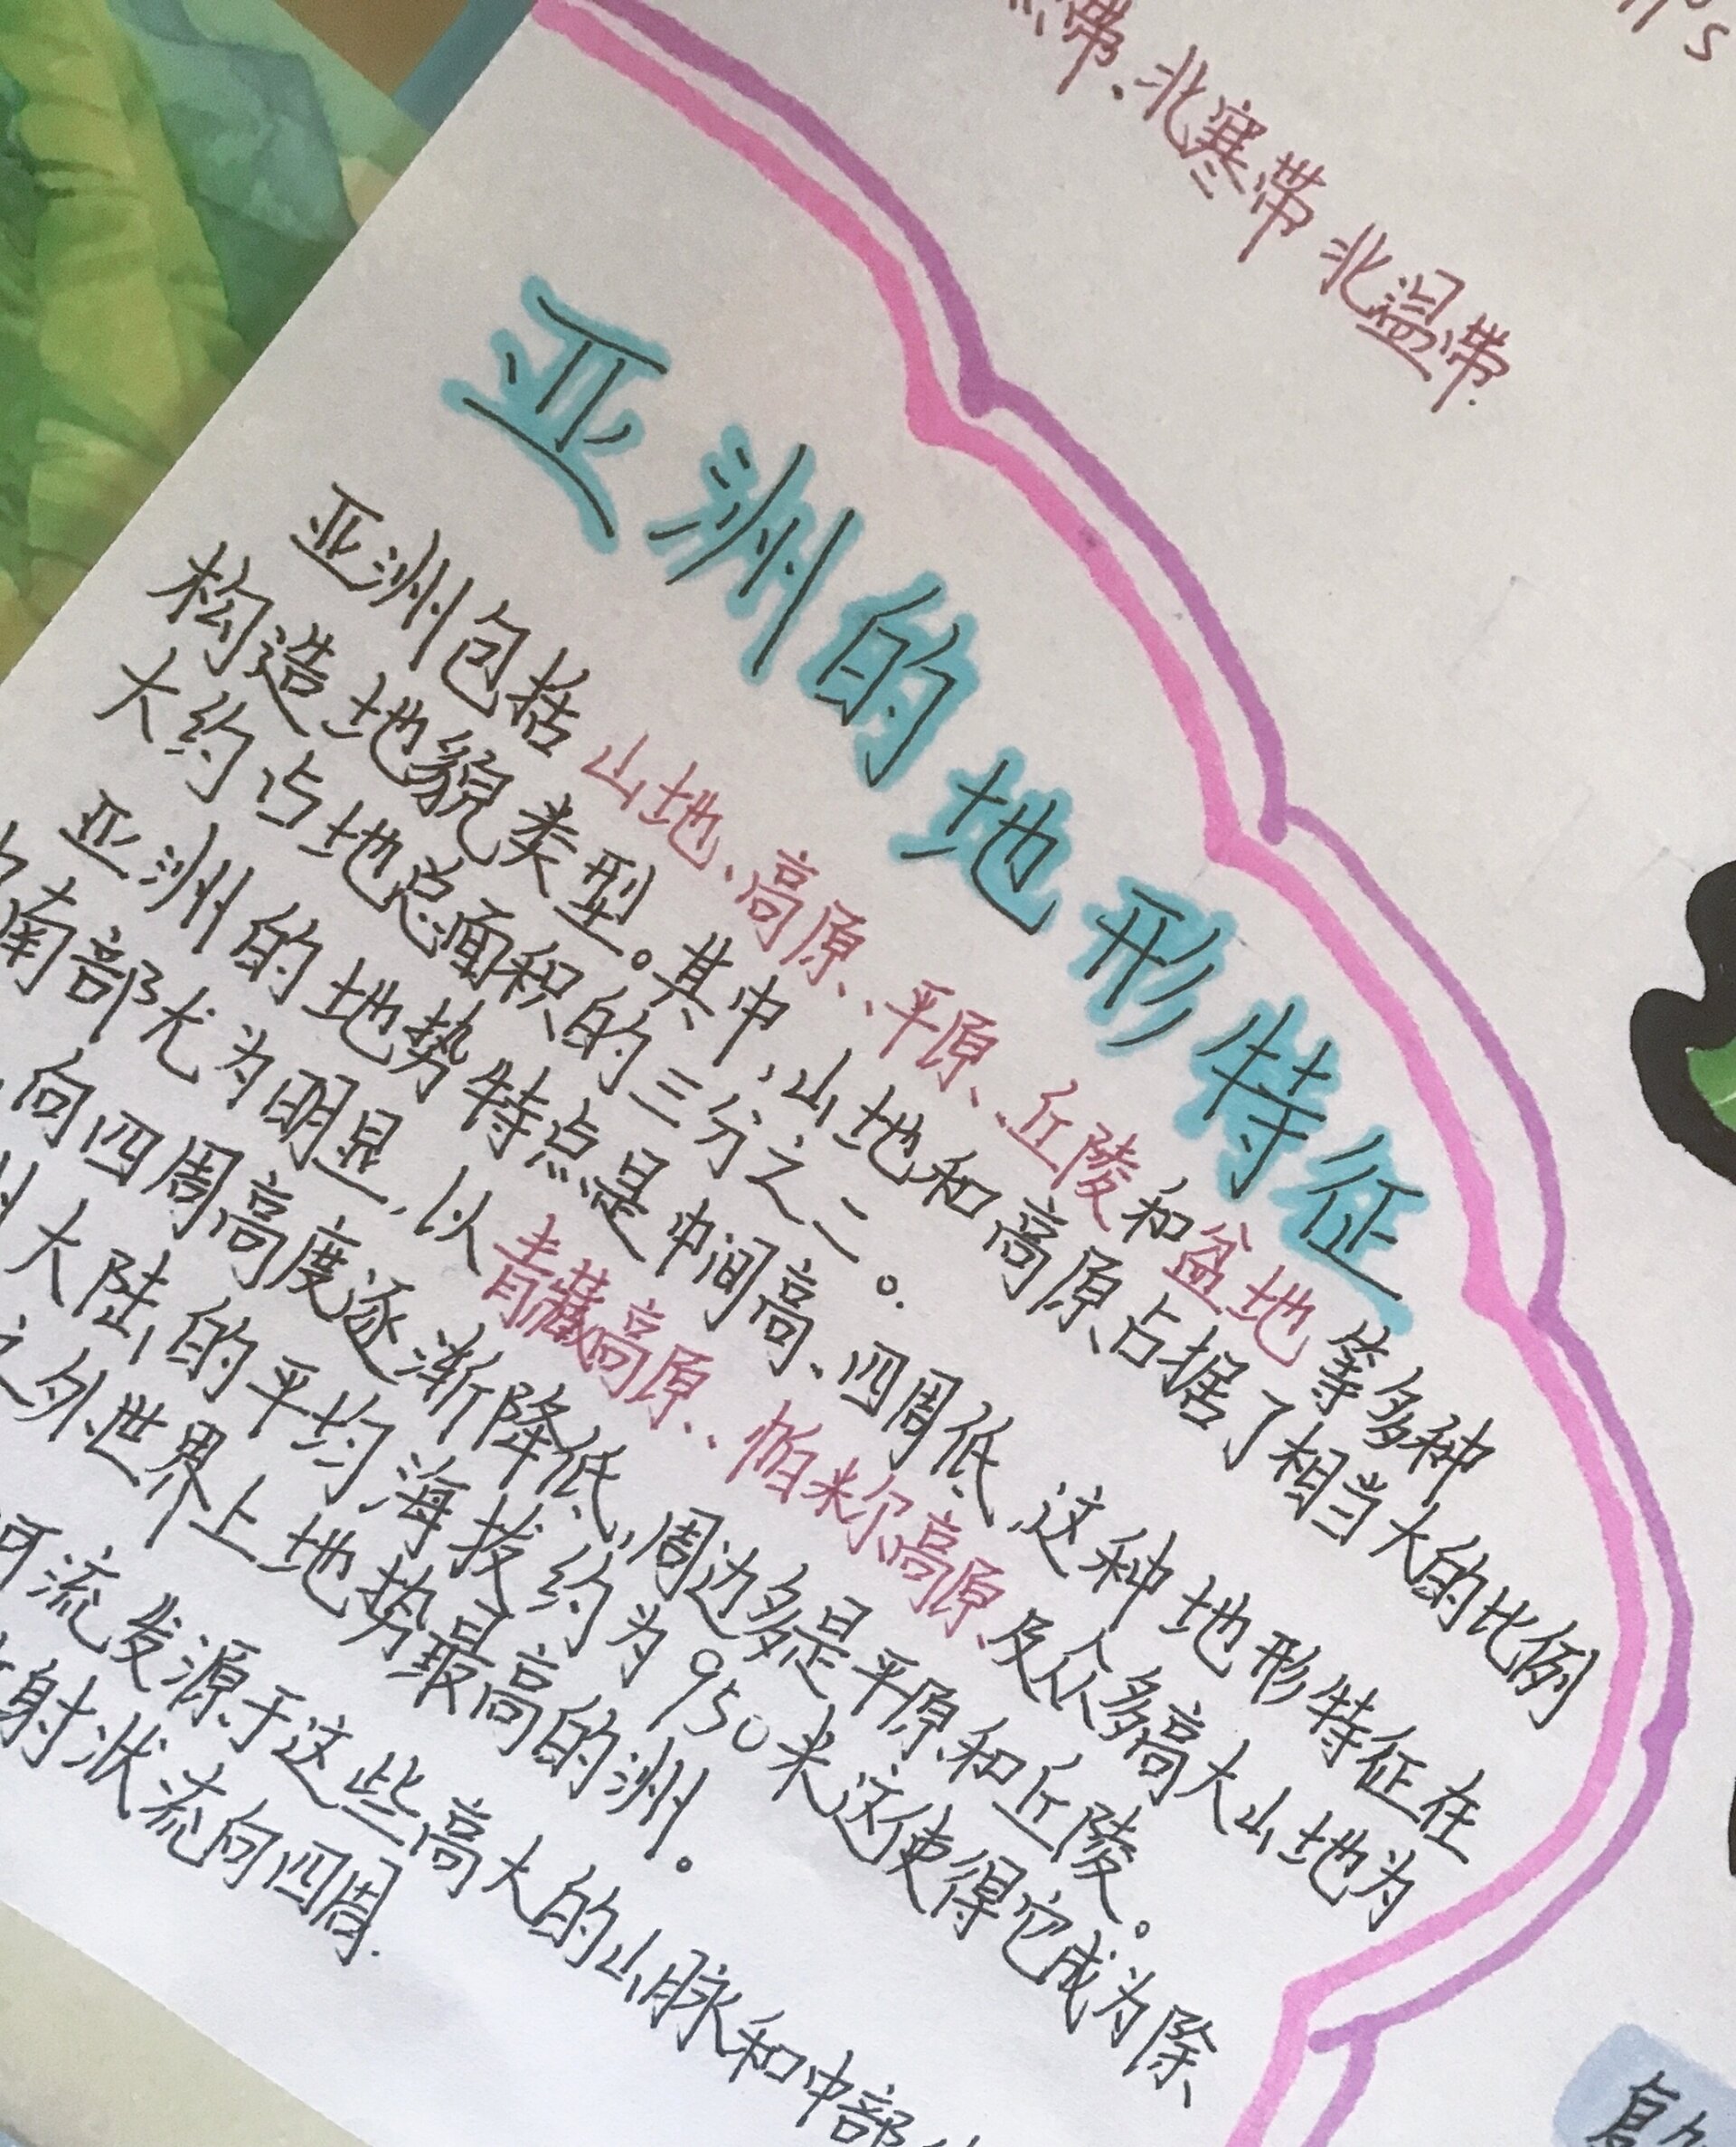 带、北寒带 北温带.
亚洲的地形特征
亚洲包括山地、高原、平原、丘陵和盆地等多种
构造地貌类型。其中,山地和高原占据了相当大的比例
大约占地总面积的三分之二。
亚洲的地势特点是中间高、四周低,这种地形特征在
南部尤为明显,以青藏高原、帕米尔高原、及众多高大山地为
向四周高度逐渐降低,周边多是平原和丘陵。
大陆的平均海拔约为950米这使得它成为除
之外世界上地势最高的洲。
河流发源于这些高大的山脉和中部
射状流向四周.